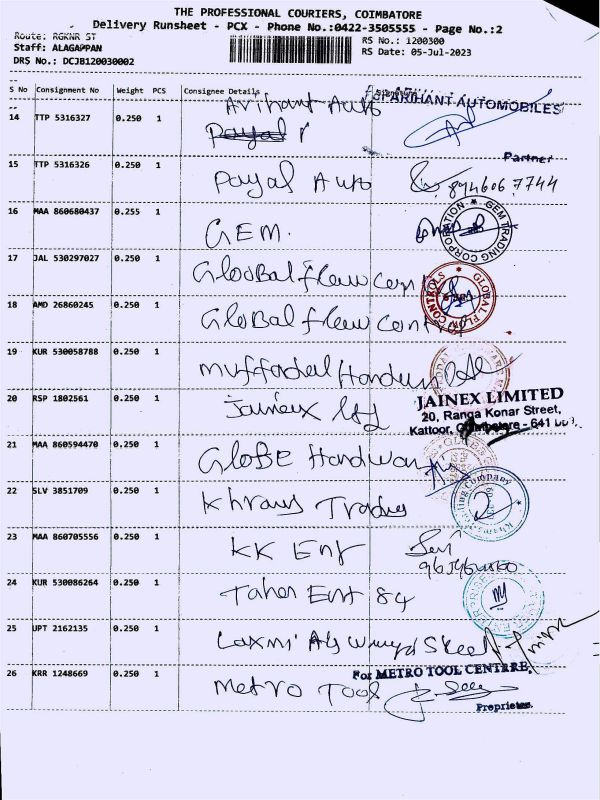 THE PROFESSIONAL COURIERS, COIMBATORE
Delivery Runsheet - PCX - Phone No.:0422-3505555 - Page No.:2
Route: RGKNR ST
RS No.: 1200300
Staff: ALAGAPPAN
RS Date: 05-Jul-2023
DRS No.: DCJB120030002
S No Consignment No Weight PCS Consignee Details Signature
14 TTP 5316327 0.250 1 Arihant Auto
Payal
ARIHANT AUTOMOBILES
Partner
15 TTP 5316326 0.250 1 Payal Auto
16 MAA 860680437 0.255 1 GEM.
GEM TRADING CORPORATION
17 JAL 530297027 0.250 1 Gloobal flow
GLOBAL FLOW CONTROLS
18 AMD 26860245 0.250 1 Global flow
19 KUR 530058788 0.250 1
20 RSP 1802561 0.250 1 Jainex
JAINEX LIMITED
20, Ranga Konar Street,
Kattoor, Coimbatore - 641
21 MAA 860594470 0.250 1 GLOBE Hardware
22 SLV 3851709 0.250 1
23 MAA 860705556 0.250 1 KK Ent
24 KUR 530086264 0.250 1 Taher Ent 84
25 UPT 2162135 0.250 1 Laxmi
26 KRR 1248669 0.250 1 Metro Tool
For METRO TOOL CENTRE,
Proprietor.